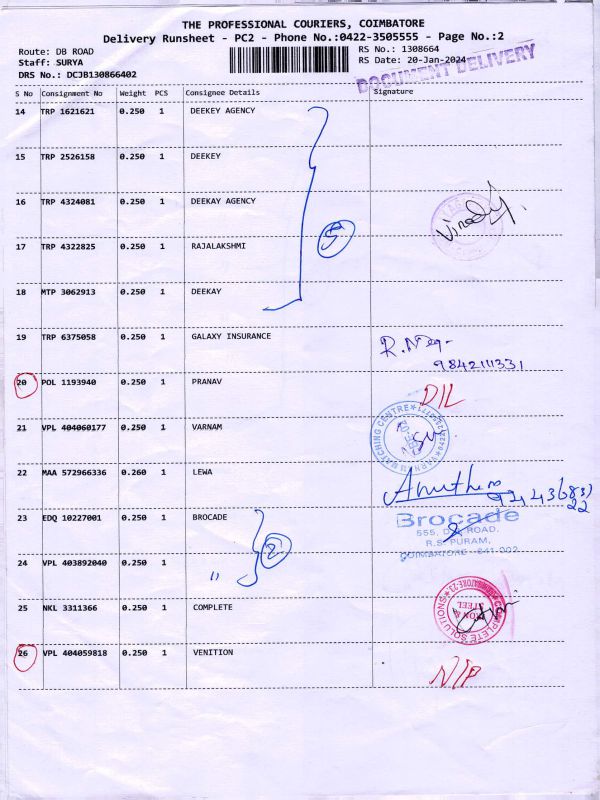 THE PROFESSIONAL COURIERS, COIMBATORE
Delivery Runsheet - PC2 - Phone No.:0422-3505555 - Page No.:2
Route: DB ROAD RS No.: 1308664
Staff: SURYA RS Date: 20-Jan-2024
DRS No.: DCJB130866402
DOCUMENT DELIVERY
S No Consignment No Weight PCS Consignee Details Signature
14 TRP 1621621 0.250 1 DEEKEY AGENCY
15 TRP 2526158 0.250 1 DEEKEY
16 TRP 4324081 0.250 1 DEEKAY AGENCY
5
17 TRP 4322825 0.250 1 RAJALAKSHMI
18 MTP 3062913 0.250 1 DEEKAY
19 TRP 6375058 0.250 1 GALAXY INSURANCE
9842111331
20 POL 1193940 0.250 1 PRANAV
D/L
21 VPL 404060177 0.250 1 VARNAM
MATCHING CENTRE
22 MAA 572966336 0.260 1 LEWA
23 EDQ 10227001 0.250 1 BROCADE
Brocade
555, D.B. ROAD,
R.S. PURAM,
COIMBATORE - 641 002
2
24 VPL 403892040 0.250 1 "
25 NKL 3311366 0.250 1 COMPLETE
COMPLETE SOLUTIONS
COIMBATORE-23
IRON &
STEEL
26 VPL 404059818 0.250 1 VENITION
N/P